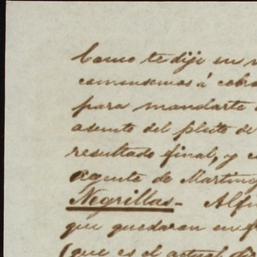 Como te dije en
comensemos á cobra
para mandarte
asunto del pleito de
resultado final, y
agente de Martin
Negrillas - Alf
que quedaron
(que es el actual